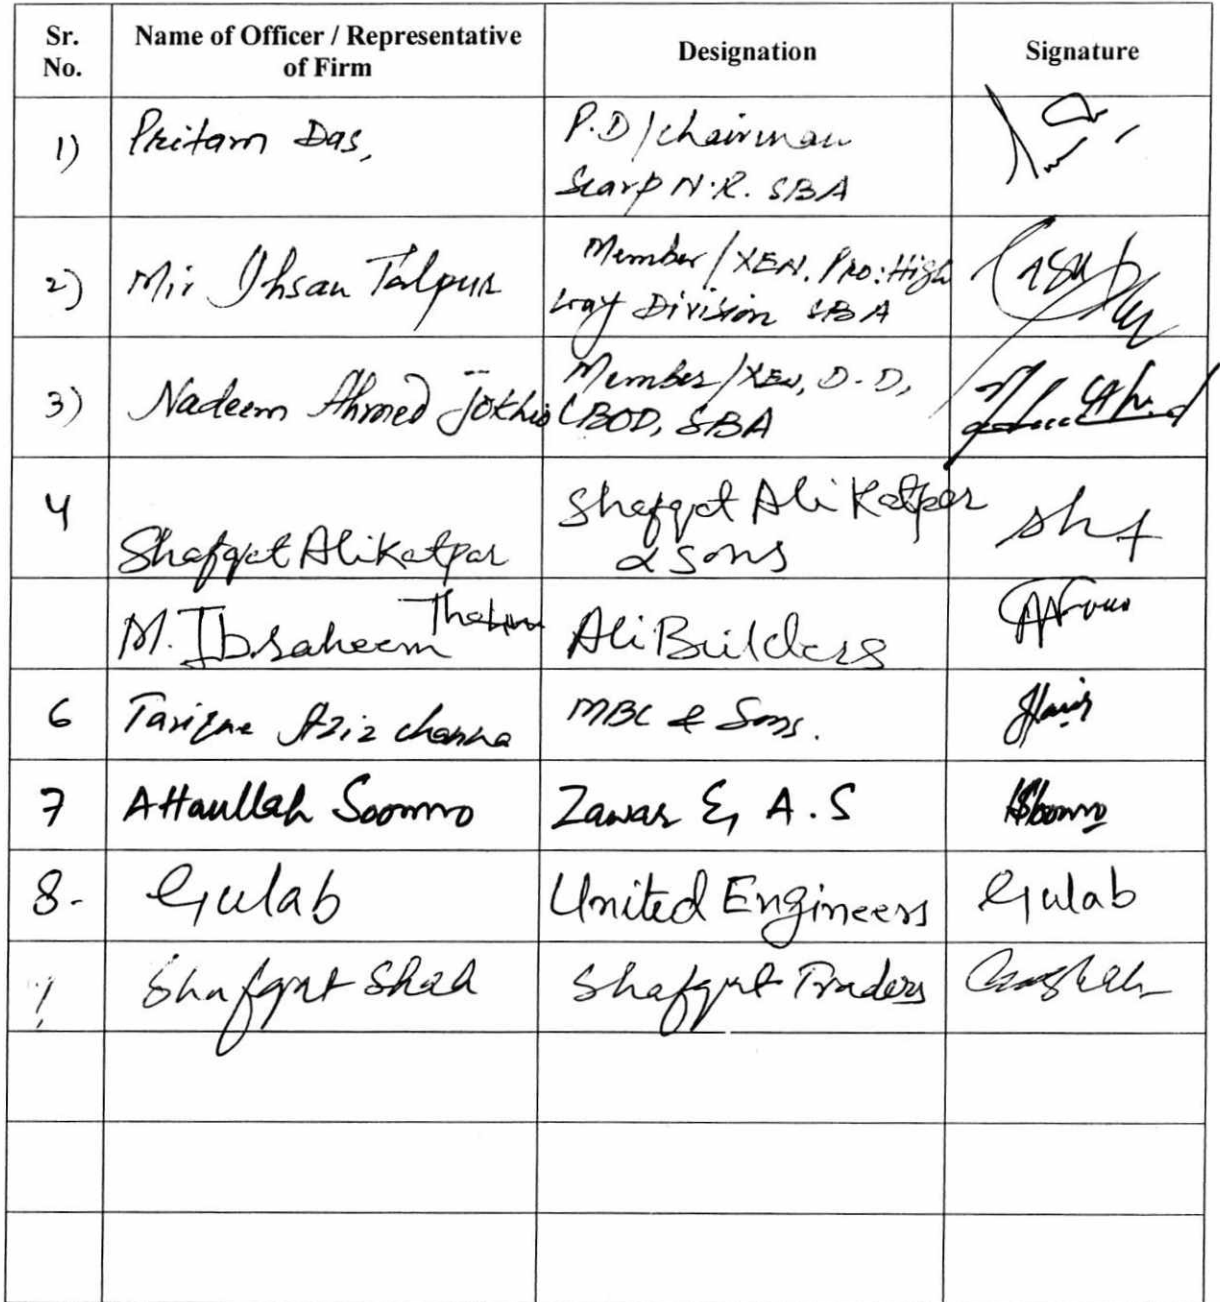 Sr. No. Name of Officer / Representative of Firm Designation Signature
1) Pritam Das, P.D/chairman
Scarp N.R. SBA
2) Mir Ihsan Talpur Member/XEN, Pro: High
way Division SBA
3) Nadeem Ahmed Jokhio Member/XEN, D-D,
LBOD, SBA
4 Shafqat Ali Katpar Shafqat Ali Katpar
& Sons shf
M. Ibraheem Ali Builders
6 Tarique Aziz Channa MBC & Sons.
7 Attaullah Soomro Zawar & A.S ASoomro
8- Gulab United Engineers Gulab
Shafqat Shah Shafqat Traders